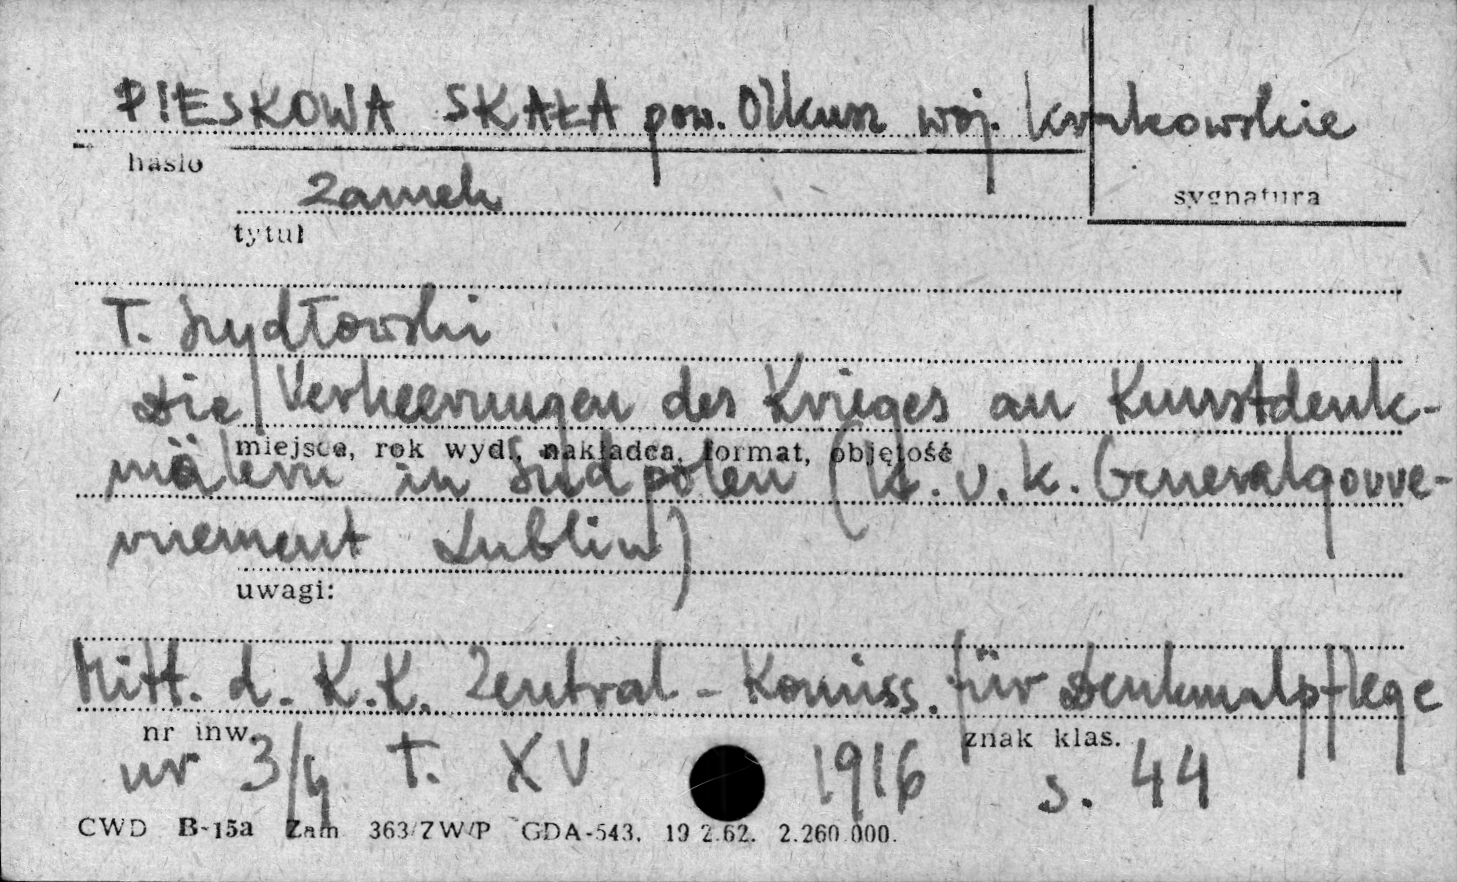 PIESKOWA SKAŁA pow. Olkusz woj. krakowskie
hasło
sygnatura
Zamek
tytuł
T. Szydłowski
Die Verheerungen des Krieges an Kunstdenk-
miejsce, rok wyd., nakładca, format, objętość
mälern in Südpolen (K. u. k. Generalgouve-
rnement Lublin)
uwagi:
Mitt. d. K.K. Zentral-Komiss. für Denkmalpflege
nr inw.
znak klas.
nr 3/4 T. XV 1916 s. 44
CWD B-15a Zam 363/ZW/P GDA-543. 19 2.62. 2.260 000.